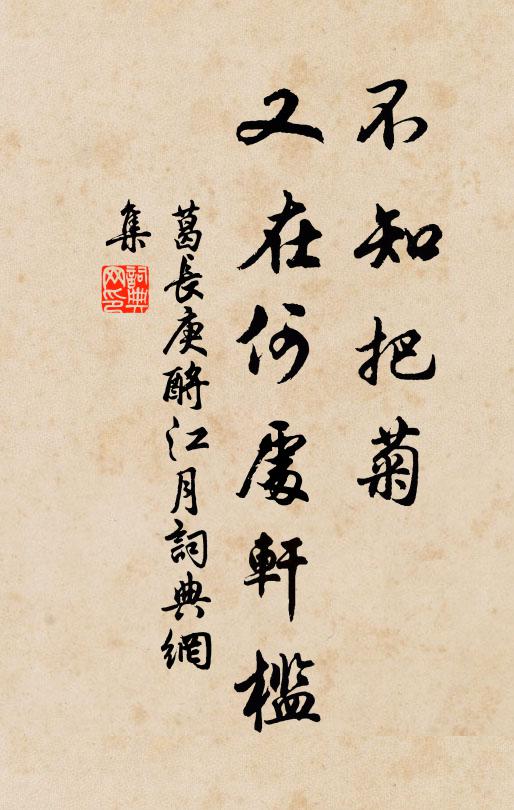 不知把菊
又在何處軒檻
葛長庚酹江月詞典網
集
詞典
网印